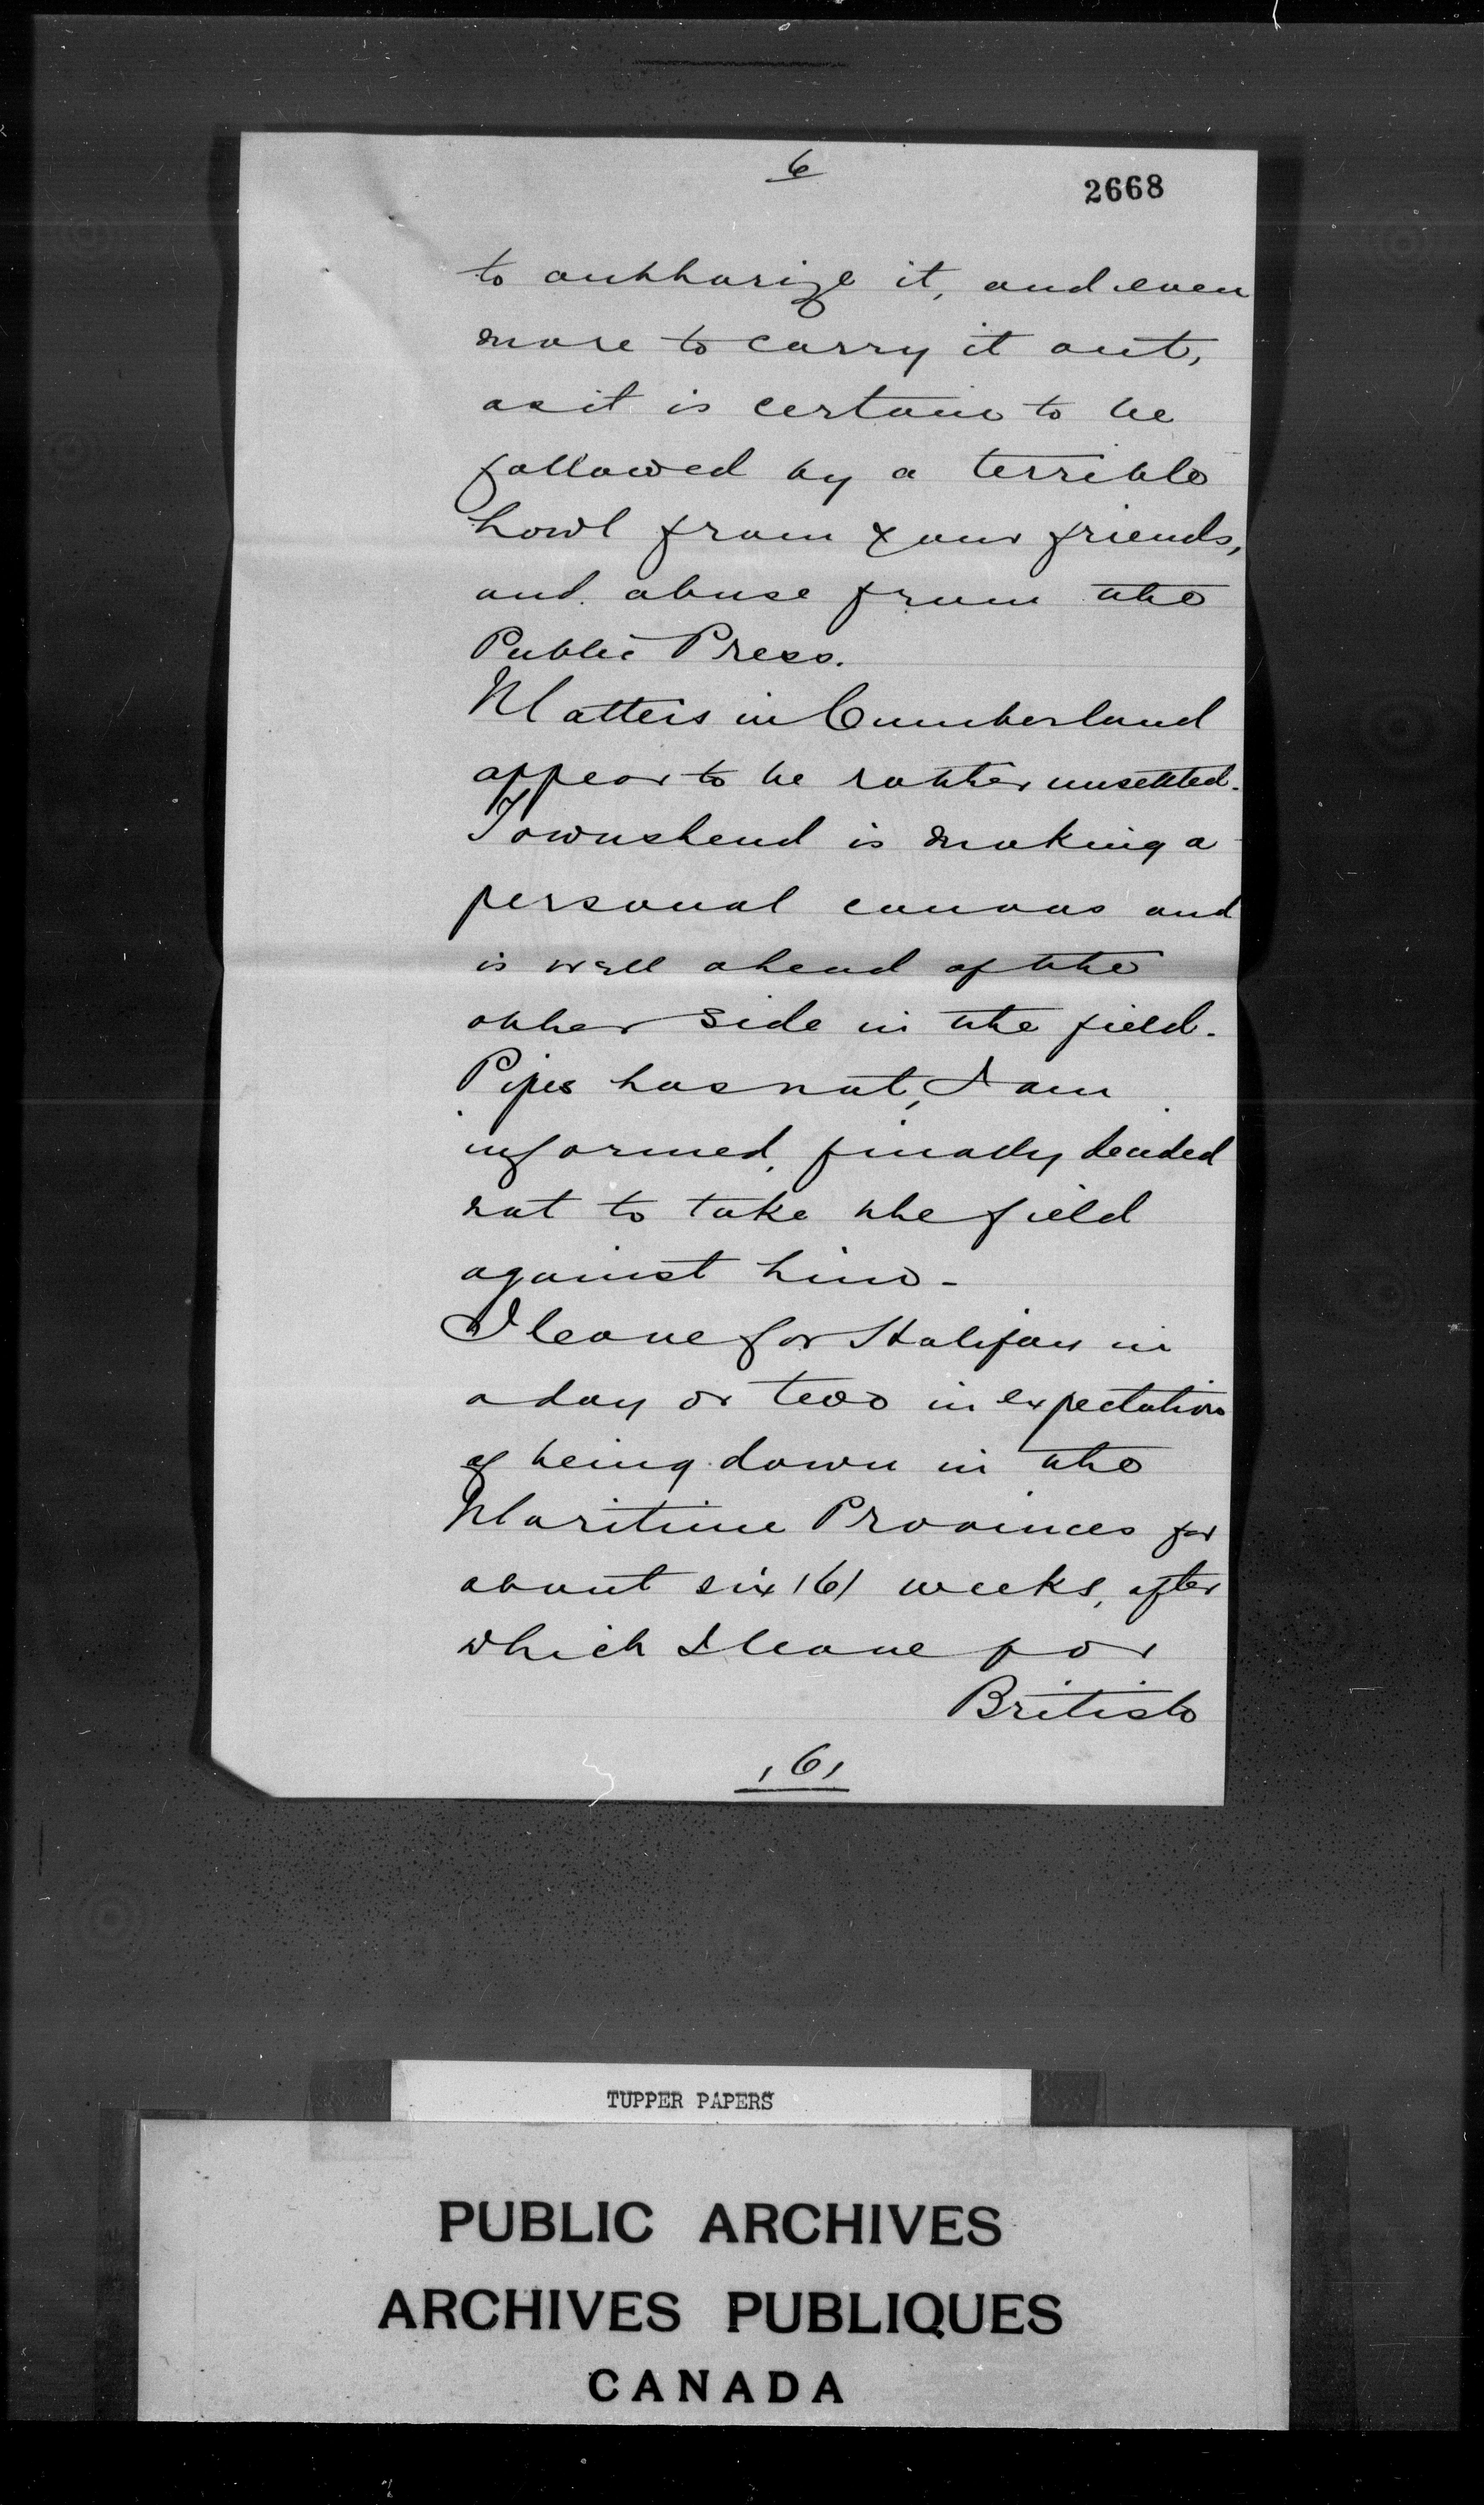 6
2668
to authorize it, and even
more to carry it out,
as it is certain to be
followed by a terrible
howl from your friends,
and abuse from the
Public Press.
Matters in Cumberland
appear to be rather unsettled.
Townshend is making a
personal canvas and
is well ahead of the
other side in the field.
Pipes has not, I am
informed, finally decided
not to take the field
against him -
I leave for Halifax in
a day or two in expectation
of being down in the
Maritime Provinces for
about six /6/ weeks, after
which I leave for
British
/6/
TUPPER PAPERS
PUBLIC ARCHIVES
ARCHIVES PUBLIQUES
CANADA